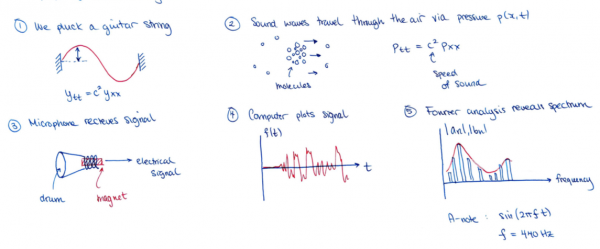 ① We pluck a guitar string
y_tt = c² y_xx
② Sound waves travel through the air via pressure p(x,t)
molecules
P_tt = c² P_xx
speed
of sound
③ Microphone recieves signal
electrical
signal
drum
magnet
④ Computer plots signal
f(t)
t
⑤ Fourier analysis reveals spectrum
|an|,|bn|
frequency
A-note : sin(2πft)
f = 440 Hz